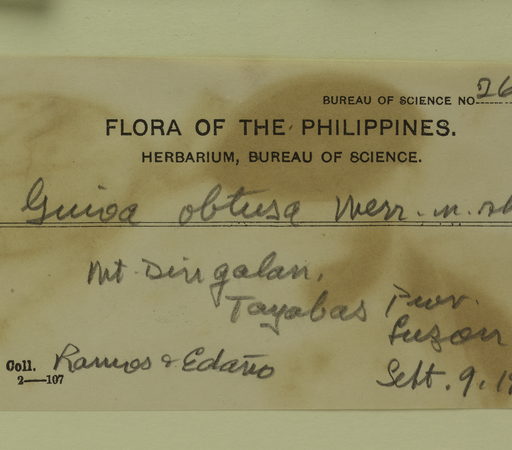 BUREAU OF SCIENCE NO 26
FLORA OF THE PHILIPPINES.
HERBARIUM, BUREAU OF SCIENCE.
Guioa obtusa Merr. n.
Mt Dingalan,
Tayabas Prov.
Luzon
Coll. Ramos & Edaño
Sept. 9, 1
2—107